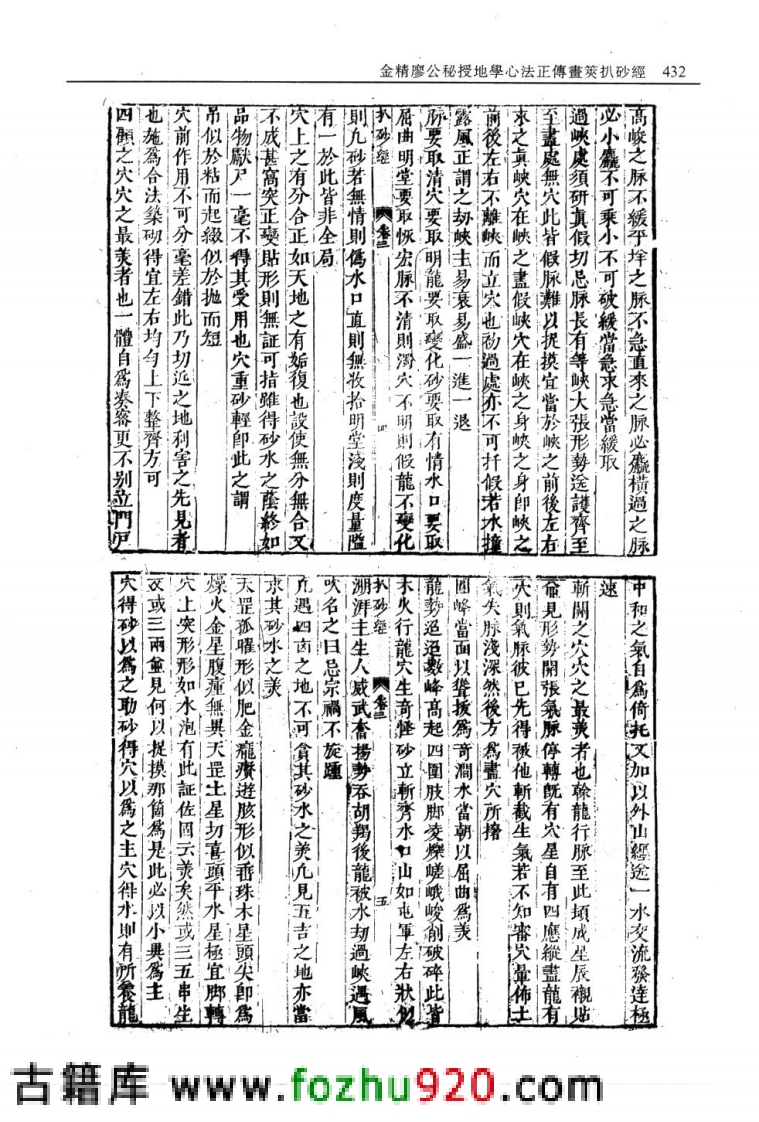 金精廖公秘授地學心法正傳畫筴扒砂經 432
高峻之脉不緩平坪之脉不急直來之脉必麤橫過之脉
必小麤不可乘小不可破緩當急求急當緩取
過峽處須研眞假切忌脉長有等峽大張形勢迄護齊至
至盡處無穴此皆假脉難以捉摸宜當於峽之前後左右
求之眞峽穴在峽之盡假峽穴在峽之身峽之身卽峽之
前後左右不離峽而立穴也刼過處亦不可扦假若水撞
露風正謂之刼峽主易衰易盛一進一退
脉要取清穴要取明龍要取變化砂要取有情水口要取
屈曲明堂要取恢宏脉不清則濁穴不明則假龍不變化
扒砂經 卷三 四
則凡砂若無情則僞水口直則無收拾明堂淺則度量隘
有一於此皆非全局
穴上之有分合正如天地之有姤復也設使無分無合又
不成甚窩突正變貼形則無証可指雖得砂水之蔭終如
品物厭尸一毫不得其受用也穴重砂輕卽此之謂
吊似於粘而起綴似於拋而短
穴前作用不可分毫差錯此乃切近之地利害之先見者
也施爲合法築砌得宜左右均勻上下整齊方可
四顧之穴穴之最美者也一體自爲奏密更不別立門戸
中和之氣自爲倚托又加以外山經迄一水交流發達極
速
斬關之穴穴之最美者也幹龍行脉至此頓成星辰襯貼
龕見形勢開張氣脉停轉旣有穴星自有四應縱盡龍有
穴則氣脉彼已先得被他斬截生氣若不知審穴暈佈土
氣失脉淺深然後方爲盡穴所撦
圓峰當面以聳拔爲奇澗水當朝以屈曲爲美
龍勢迢迢數峰高起四圍肢脚凌爍嵯峨峻削破碎此皆
木火行龍穴生奇怪砂立斬齊水口山如屯軍左右狀似
扒砂經 卷三 五
澎湃主生人威武奮揚勢吞胡羯後龍被水刼過峽遇風
吹名之曰忌宗禍不旋踵
凡遇四凶之地不可貪其砂水之美凡見五吉之地亦當
求其砂水之美
天罡孤曜形似肥金瘟㾮遊胲形似垂珠木星頭尖卽爲
燥火金星腹壅無異天罡土星切喜頭平水星極宜脚轉
穴上突形形如水泡有此証佐固云美矣然或三五串生
或三兩並見何以捉摸那箇爲是此必以小異爲主
穴得砂以爲之助砂得穴以爲之主穴得水則有所養龍
古籍库 www.fozhu920.com